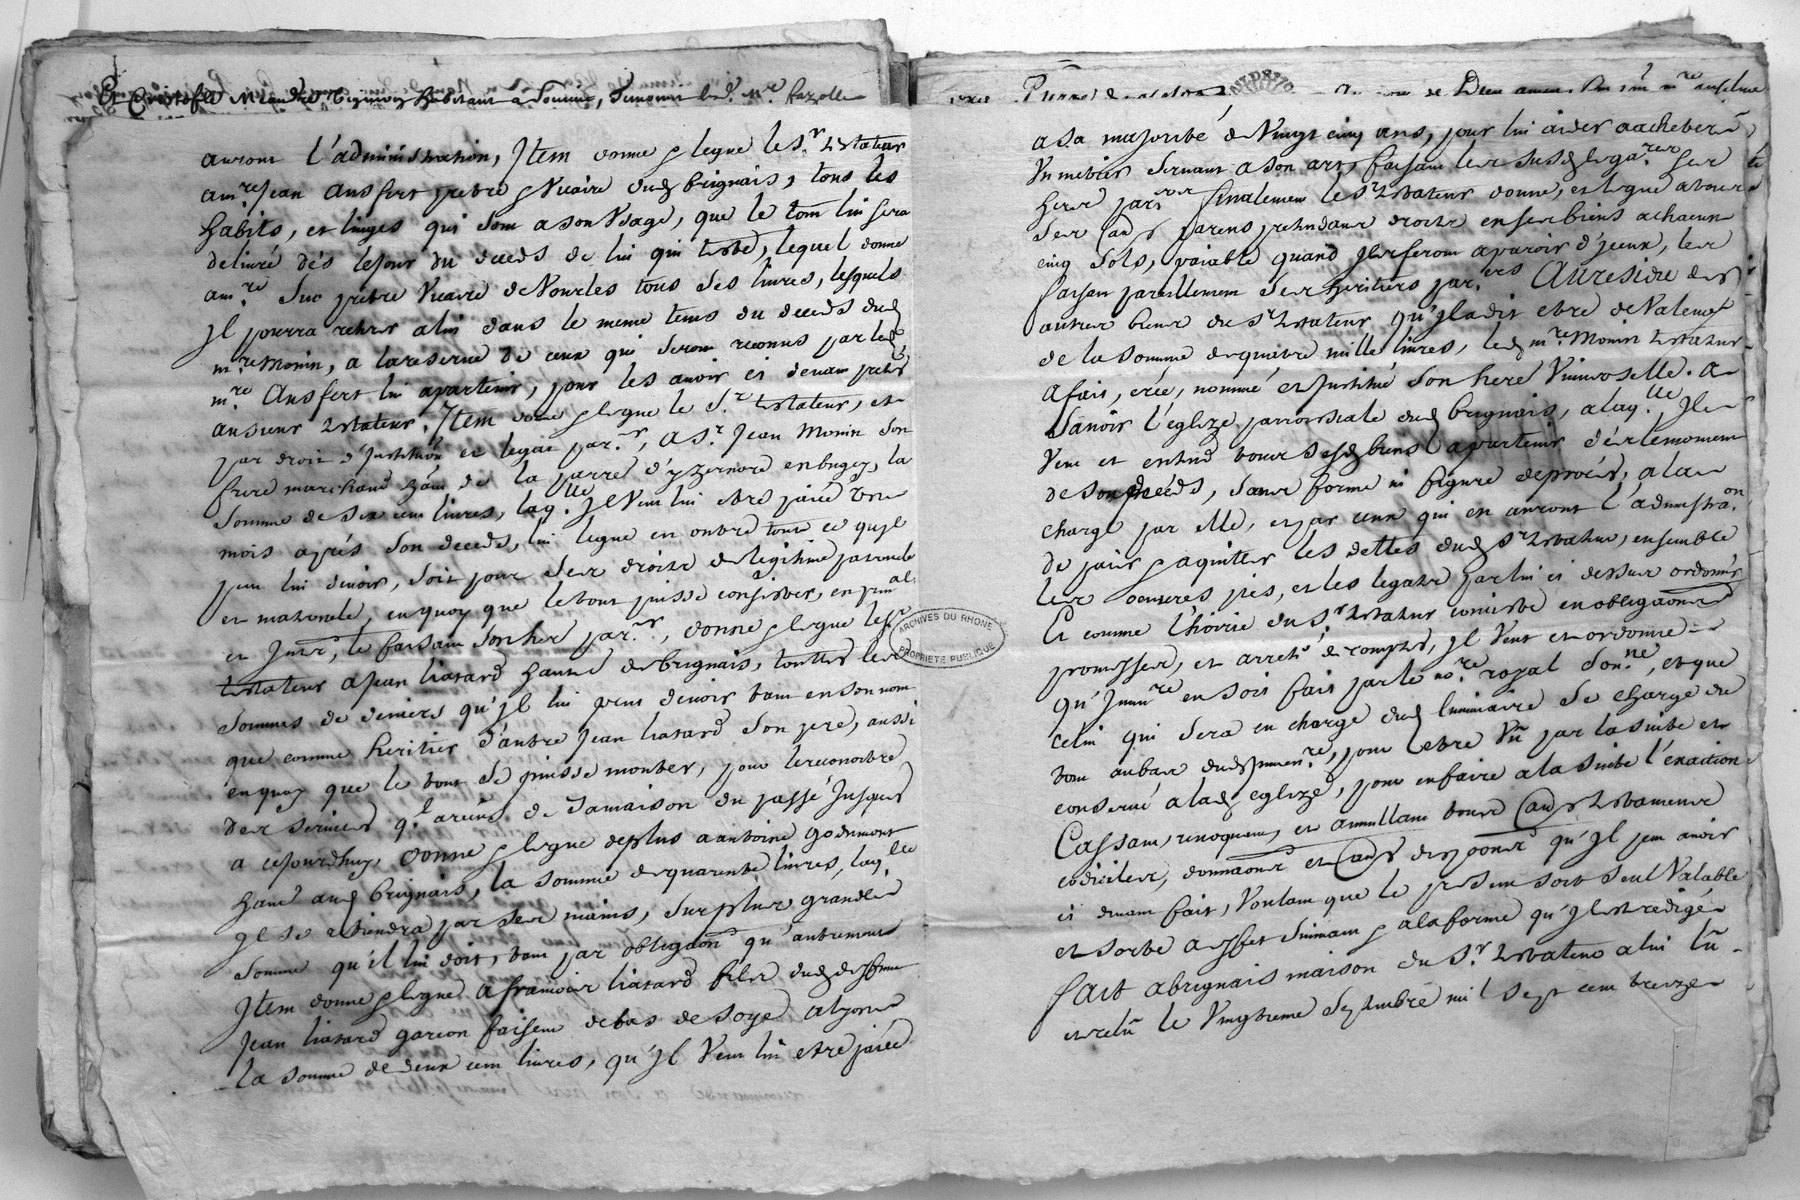 Et Cristofle habitant a témoins led. Mre
auront l'administration, Item donne & legue le Sr. testateur
a mre Jean Ansfert pretre & Vicaire dud brignais, tous les
habits, et linges qui sont a son Usage, que le tout lui sera
delivré dés le jour du deceds de lui qui teste, lequel donne
a mre Duc pretre Vicaire de Vourles tous ses livres, lesquels
Jl pourra retirer a lui dans le meme tems du deceds dud
mre Monin, a la reserve de ceux qui seront reconnus par led
mre Ansfert lui apartenir, pour les avoir ci devant pretés
au sieur testateur. Item donne & legue le Sr. testateur, et
par droit d'Jnstitution et legat par.er, a Sr. Jean Monin son
frere marchand hant de la parre d'yzernore en bugey, la
somme de six cent livres, laq.lle Jl Veut lui etre paiée trois
mois aprés son deceds, lui legue en outre tout ce qu'Jl
peut lui devoir, soit pour ses droits de legitime paternelle
et maternelle, en quoy que le tout puisse consister, en prin.al
et Jnter, le faisant son her par.er, donne & legue led Sr
testateur a Jean liatard hant de brignais, touttes les
sommes de deniers qu'Jl lui peut devoir tant en son nom
que comme heritier d'autre Jean liatard son pere, aussi
en quoy que le tout se puisse monter, pour le reconoitre
des services q.l a reçus de sa maison du passé Jusques
a cejourdhuy, donne & legue de plus a antoine godemont
hant aud brignais, la somme de quarente livres, laq.lle
Jl se retiendra par ses mains, sur plus grande
somme qu'il lui doit, tant par obligaon qu'autrement
Item donne & legue a francois liatard fils dud deffunt
Jean liatard garcon faiseur de bas de soye a lyon
la somme de deux cent livres, qu'Jl Veut lui etre paiée
Pierre de Dieu amen mre anselme
a sa majorité de Vingt cinq ans, pour lui aider a acheter
Un metier servant a son art, faisant les susd legares ses
hers par.ers finalement le Sr testateur donne, et legue a tous
ses aus parens pretendans droits en ses biens a chacun
cinq sols, paiable quand Jls feront aparoir d'Jceux, les
faisant pareillement ses heritiers par.ers Au residu des
autres biens du Sr testateur qu'Jl a dit etre de Valeur
de la somme de quatre mille livres, led mre Monin testateur
a fait, crée, nommé et Jnstitué son here Universelle. a
savoir l'eglize parroissiale dud brignais, a laq.lle Jl
Veut et entend tous sesd biens apartenir dés le moment
de son deceds, sans forme ni figure de procés, a la
charge par elle, et par ceux qui en auront l'administra.on
de paier & aquitter les dettes dud Sr testateur, ensemble
les oeuvres pies, et les legats par lui ci dessus ordonnés
Et comme l'hoirie du Sr testateur consiste en obligaons
promesses, et arretés de comptes, Jl Veut et ordonne
qu'Jnvre en soit fait par le nore royal son.né, et que
celui qui sera en charge dud luminaire se charge du
tout au bas dud Jnvenre, pour etre Vû par la suite et
conservé a lad eglize, pour en faire a la suite l'exaction
Cassant, revoquant, et annullant tous aus testamens
codiciles, donnaons et aus dispoons qu'Jl peut avoir
ci devant fait, Voulant que le present soit seul Valable
et sorte a effet suivant & a la forme qu'Jl est redigé
fait a brignais maison du Sr. testateur a lui lû
et relû le Vingtieme septembre mil sept cent treize
ARCHIVES DU RHONE
PROPRIETE PUBLIQUE